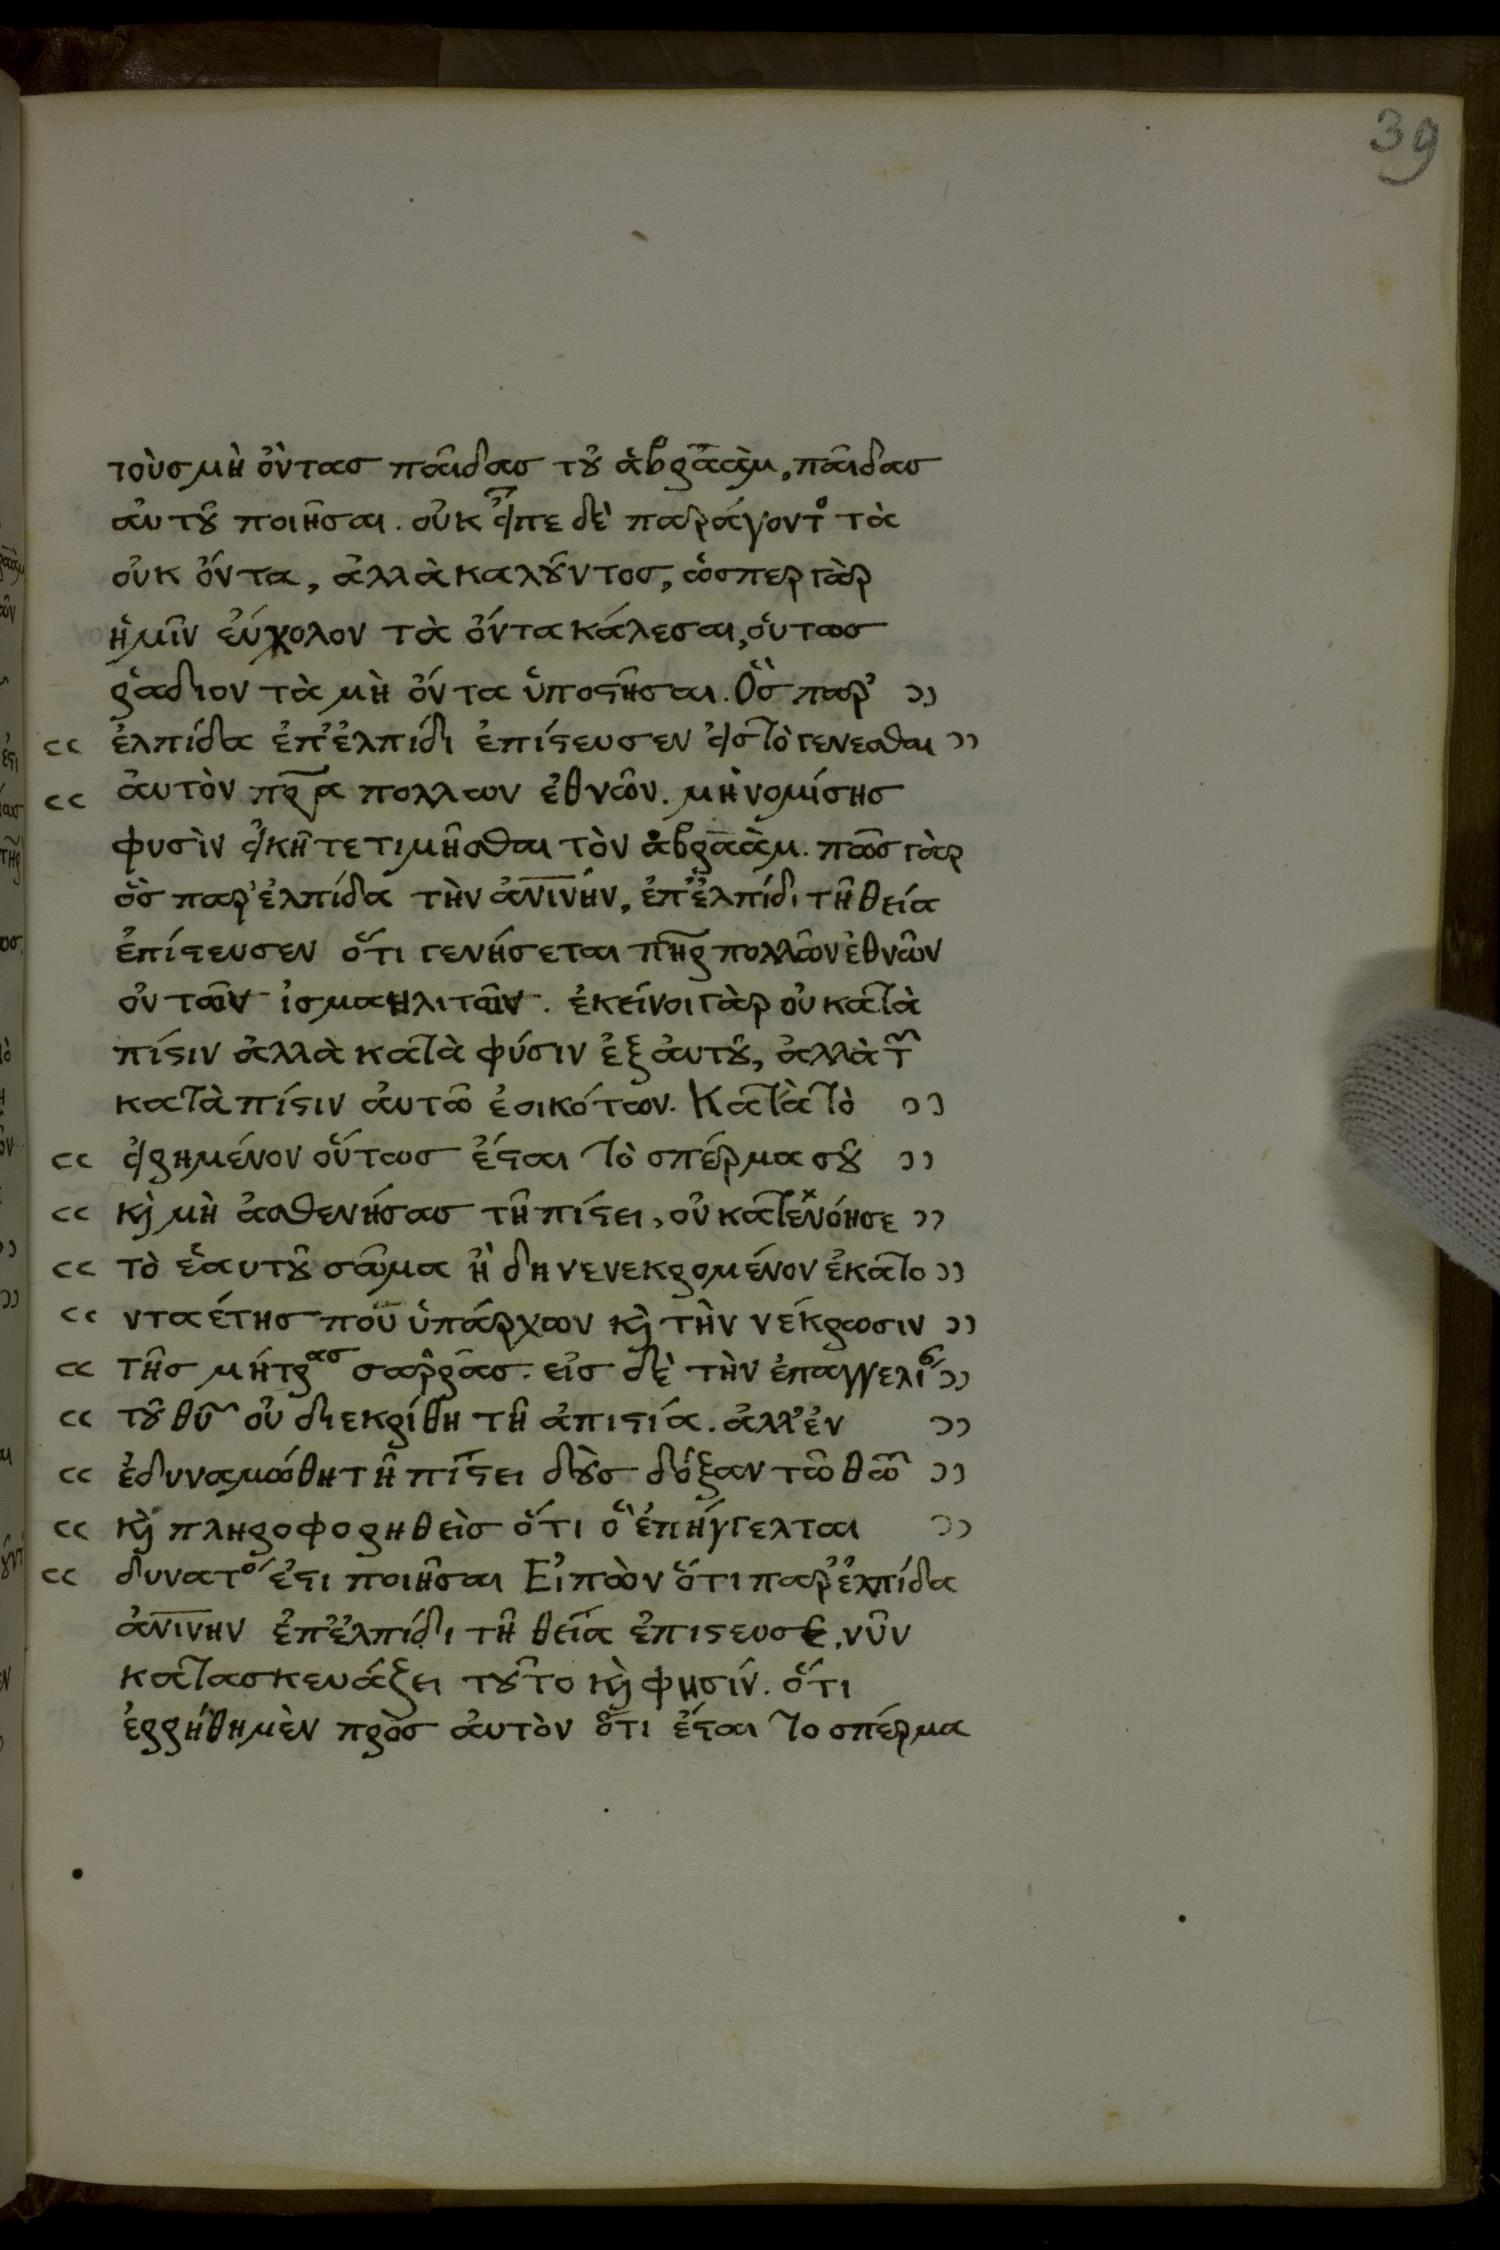 39
τοὺσ μὴ ὄντασ παῖδασ τοῦ ἁβρᾱὰμ, παῖδασ
αὐτοῦ ποιῆσαι. οὐκ εἶπε δὲ παράγοντο τὰ
οὐκ ὄντα, ἀλλὰ καλοῦντοσ, ὥσπερ γὰρ
ἡμῖν εὔχολον τὰ ὄντα κάλεσαι, οὕτωσ
ῥάδιον τὰ μὴ ὄντα ὑποϛῆσαι. Ὃσ παρ' ))
(( ἐλπίδα ἐπ' ἐλπίδι ἐπίϛευσεν εἰσ τὸ γενεσθαι ))
(( ἀυτὸν πρ̄α πολλων ἐθνῶν. μὴ νομίσησ
φυσὶν εἰκῆ τετιμῆσθαι τὸν ἁβρᾱὰμ. πῶσ γὰρ
ὃσ παρ' ἐλπίδα τὴν ἀν̄ῑνήν, ἐπ' ἐλπίδι τῆ θεία
ἐπίϛευσεν ὅτι γενήσεται πη̄ρ πολλῶν ἐθνῶν
οὐ τῶν ἰσμαηλιτῶν. ἐκείνοι γὰρ οὐ κατὰ
πίϛιν ἀλλὰ κατὰ φύσιν ἐξ ἀυτοῦ, ἀλλὰ τ͂
κατὰ πίϛιν ἀυτῶ ἐοικότων. Κατὰ τὸ ))
(( εἰρημένον οὕτωσ ἔϛαι τὸ σπέρμα σοῦ ))
(( κὶ μὴ ἀσθενήσασ τῆ πίϛει, οὐ κατενόησε ))
(( τὸ ἑαυτοῦ σῶμα ἤδη νενεκρομένον ἑκατο ))
(( νταέτησ που ὑπάρχων κὶ τὴν νέκρωσιν ))
(( τῆσ μήτρασ σαρρᾶσ. εἰσ δὲ τὴν ἐπαγγελι ))
(( τοῦ θῡ οὐ διεκρίθη τῆ ἀπιϛία. ἀλλ' ἐν ))
(( ἐδυναμώθη τῆ πίϛει δοὺσ δόξαν τῶ θω̄ ))
(( κὶ πληροφορηθεὶσ ὅτι ὃ ἐπήγγελται ))
(( δυνατό ἐϛι ποιῆσαι Εἰπὼν ὅτι παρ' ἐλπίδα
ἀν̄ῑνην ἐπ' ἐλπίδι τῆ θεία ἐπιϛευσε, νῦν
κατασκευάζει τοῦτο κὶ φησίν. ὅτι
ἐρρήθη μὲν πρὸσ ἀυτὸν ὅτι ἔϛαι το σπέρμα